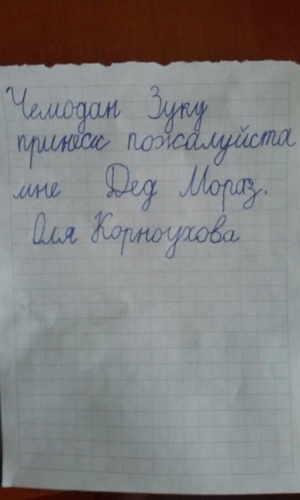 Чемодан Зуку
принеси пожалуйста
мне Дед Мораз.
Оля Корноухова